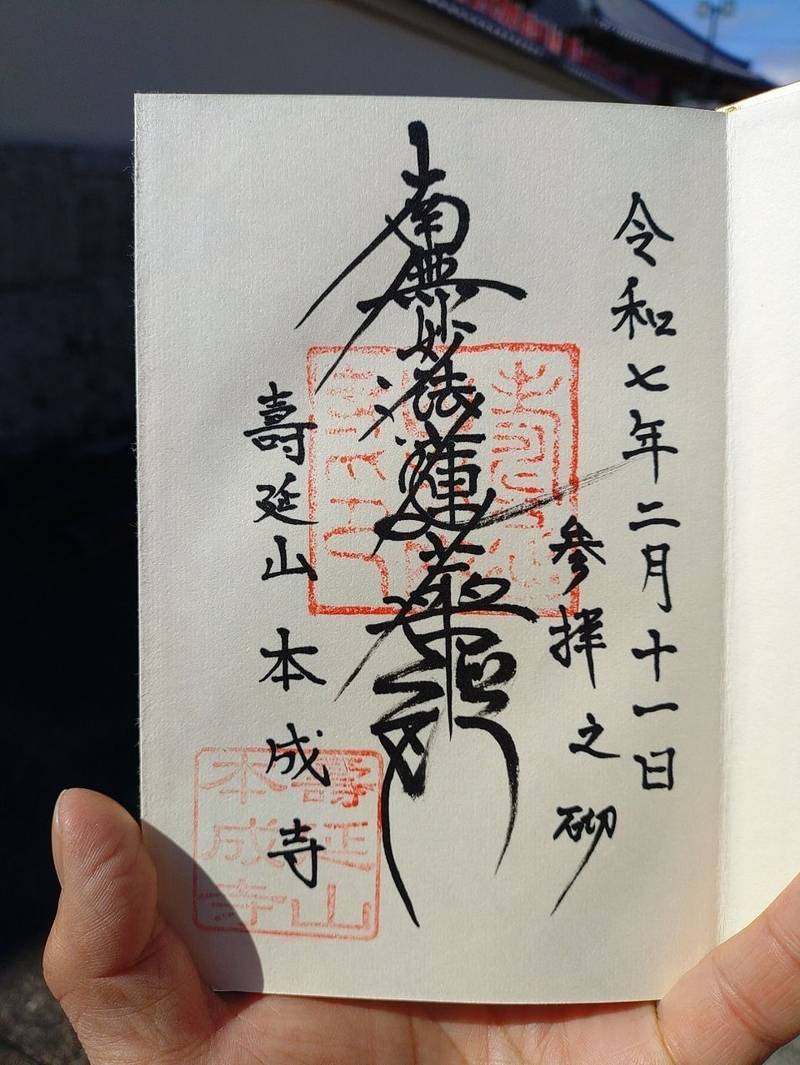 令和七年二月十一日
参拝之砌
南無妙法蓮華經
壽延山 本成寺
壽延山
本成寺